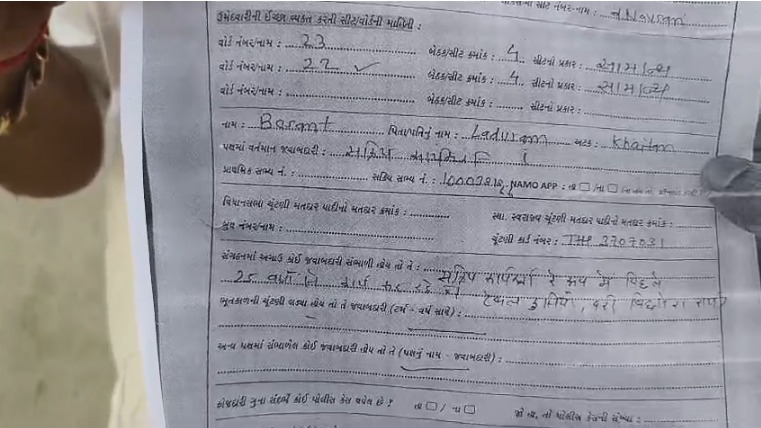 ઉમેદવારીની ઈચ્છા વ્યક્ત કરતી સીટ/વોર્ડની માહિતી :
વોર્ડ નંબર/નામ : 23 બેઠક/સીટ ક્રમાંક : 4 સીટનો પ્રકાર : સામાન્ય
વોર્ડ નંબર/નામ : 22 ✓ બેઠક/સીટ ક્રમાંક : 4 સીટનો પ્રકાર : સામાન્ય
વોર્ડ નંબર/નામ : બેઠક/સીટ ક્રમાંક : સીટનો પ્રકાર :
નામ : Basant પિતા/પતિનું નામ : Laduram અટક :
પક્ષમાં વર્તમાન જવાબદારી : સક્રિય
પ્રાથમિક સભ્ય નં. : સક્રિય સભ્ય નં. : NAMO APP : હા / ના
વિધાનસભા ચૂંટણી મતદાર યાદીનો મતદાર ક્રમાંક : સ્થા. સ્વરાજ્ય ચૂંટણી મતદાર યાદીનો મતદાર ક્રમાંક :
બુથ નંબર/નામ : ચૂંટણી કાર્ડ નંબર : 3707031
સંગઠનમાં અગાઉ કોઈ જવાબદારી સંભાળી હોય તો તે : सक्रिय कार्यकर्ता के रूप में पिछले
25 वर्षों से कार्य कर रहे
ભૂતકાળની ચૂંટણી લડ્યા હોય તો તે જવાબદારી (ટર્મ - વર્ષ સાથે) :
અન્ય પક્ષમાં સંભાળેલ કોઈ જવાબદારી હોય તો તે (પક્ષનું નામ - જવાબદારી) :
ફોજદારી ગુના સંદર્ભે કોઈ પોલીસ કેસ થયેલ છે ? હા / ના જો હા, તો પોલીસ કેસની સંખ્યા :